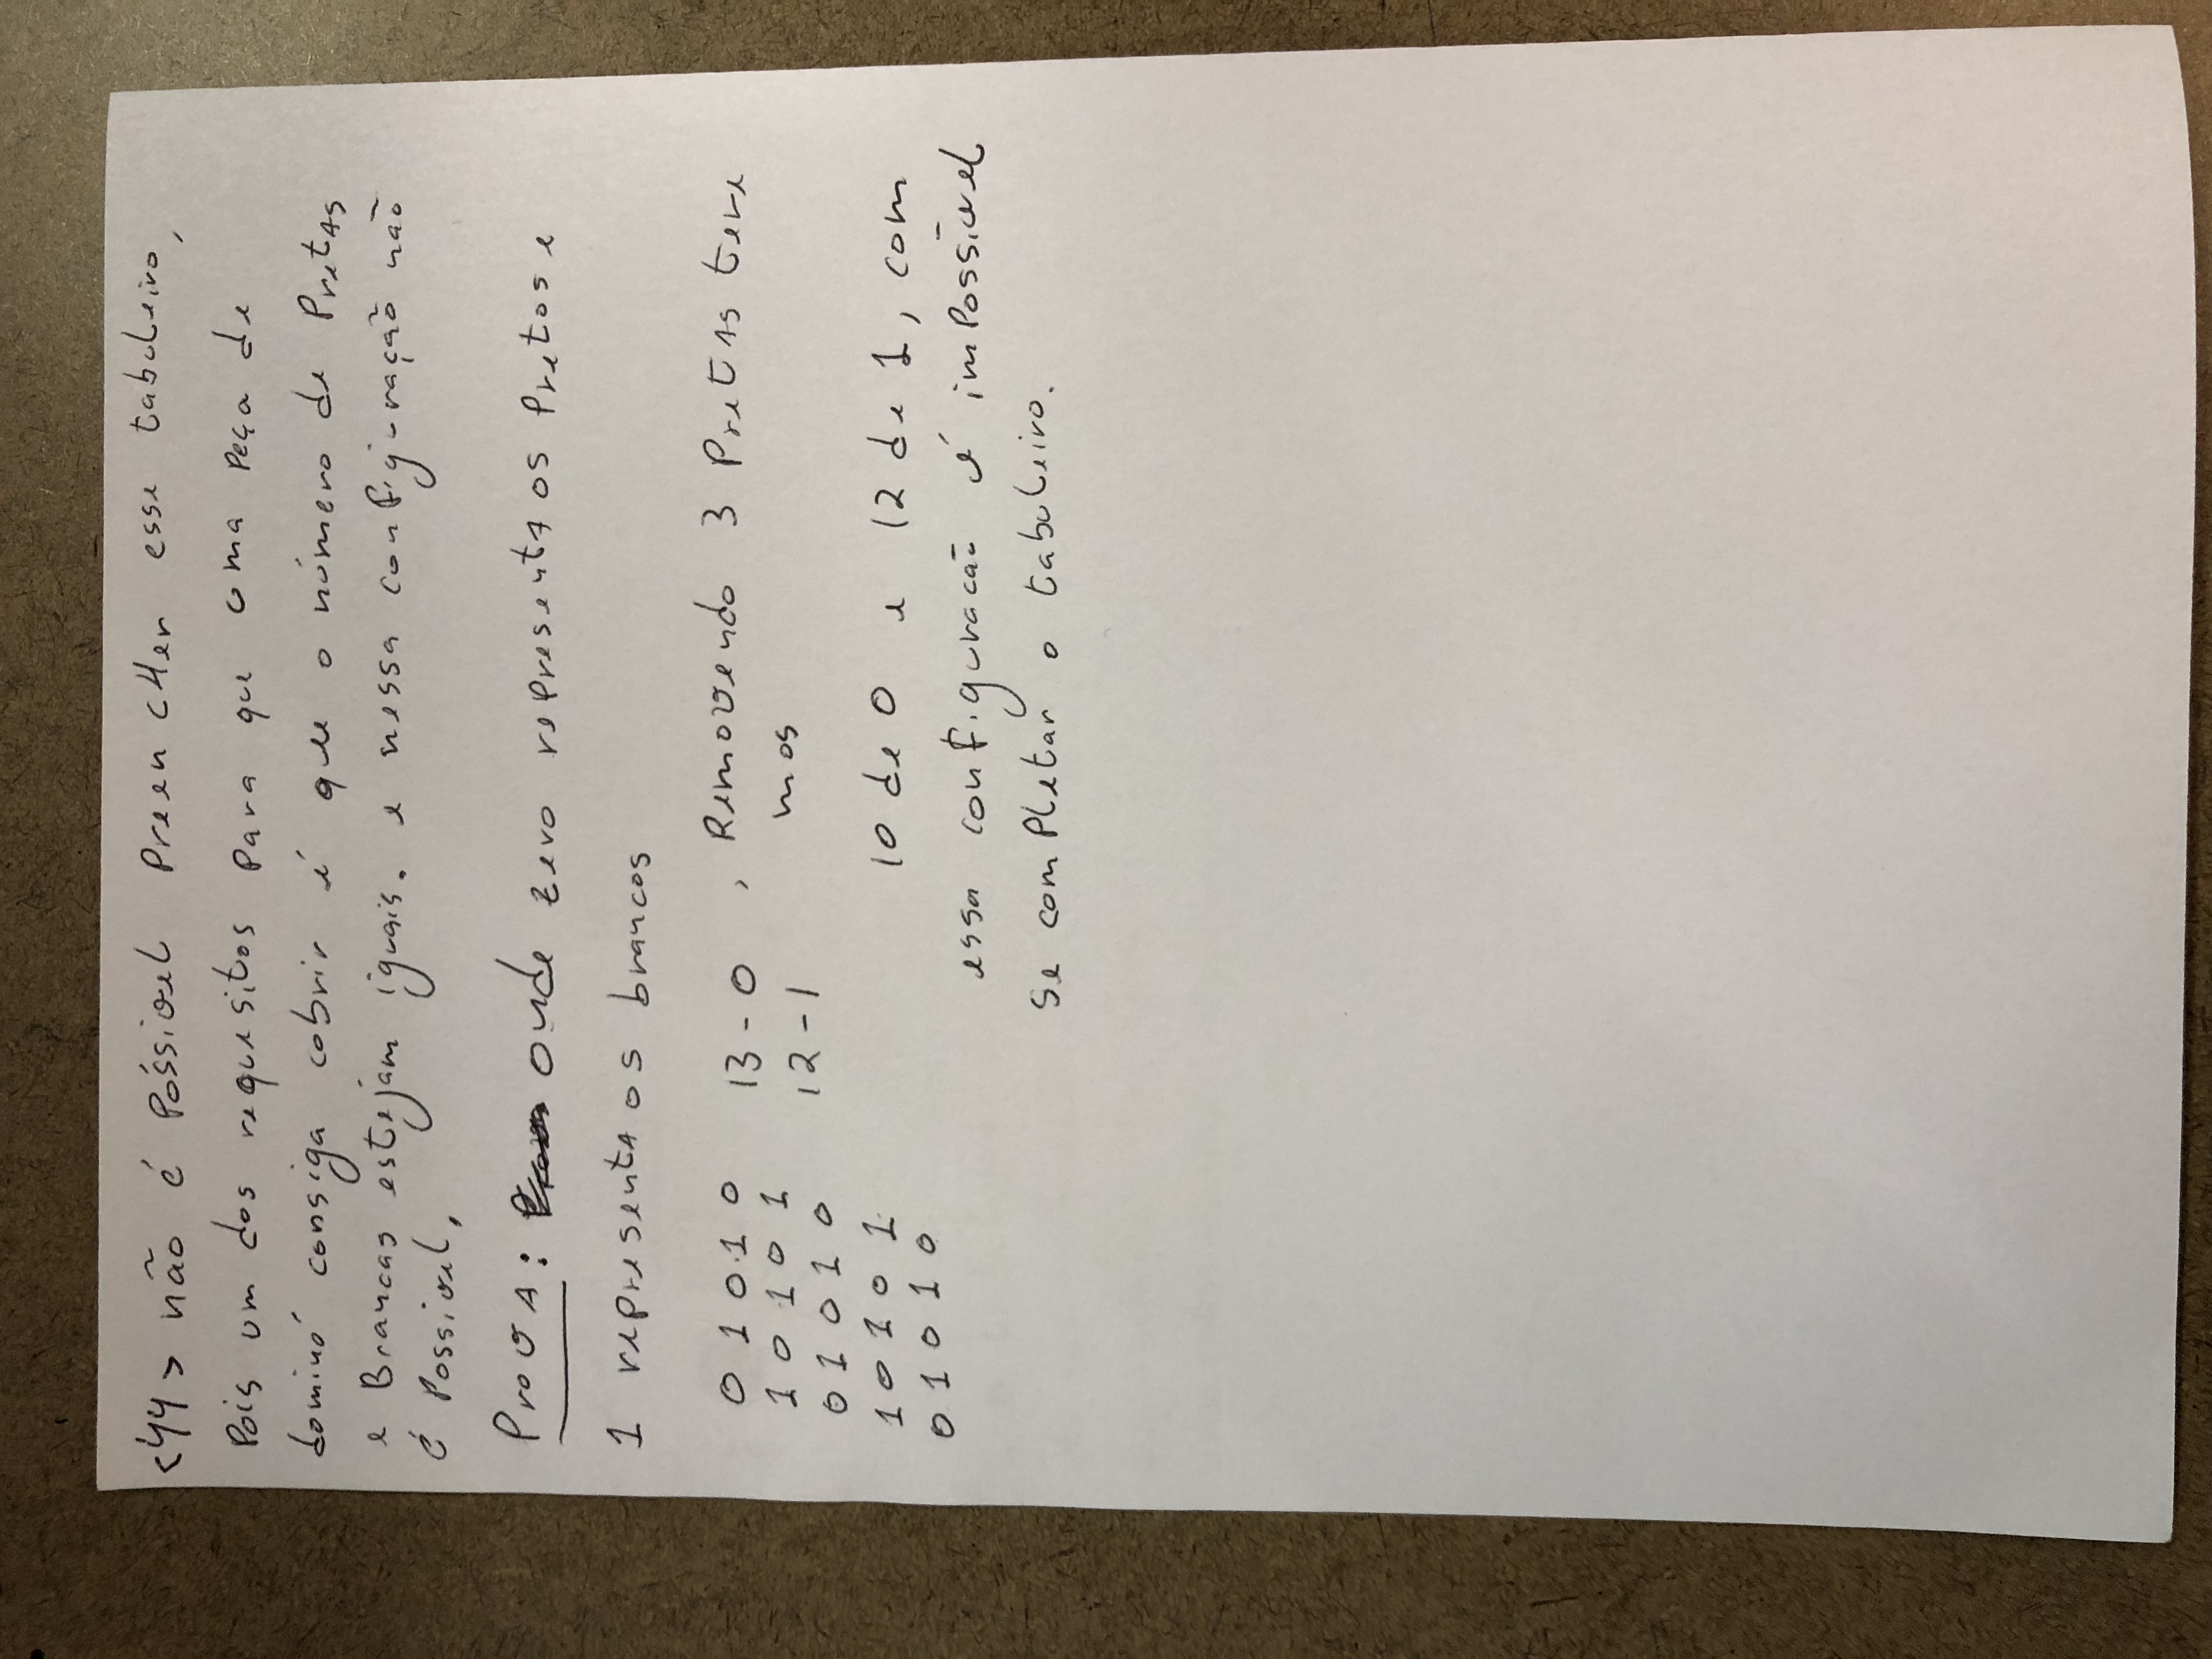 <44> não é Póssivel Preencher esse tabuleiro,
Pois um dos requisitos Para que uma Peça de
dominó consiga cobrir é que o número de Pretas
e Brancas estejam iguais. e nessa configuração não
é Possivel.
Prova: onde zero representa os Pretos e
1 representa os brancos
0 1 0 1 0 13 - 0 , Removendo 3 Pretas tere
1 0 1 0 1 12 - 1 mos
0 1 0 1 0
1 0 1 0 1 10 de 0 e 12 de 1, com
0 1 0 1 0
essa configuracão é impossível
se completar o tabuleiro.